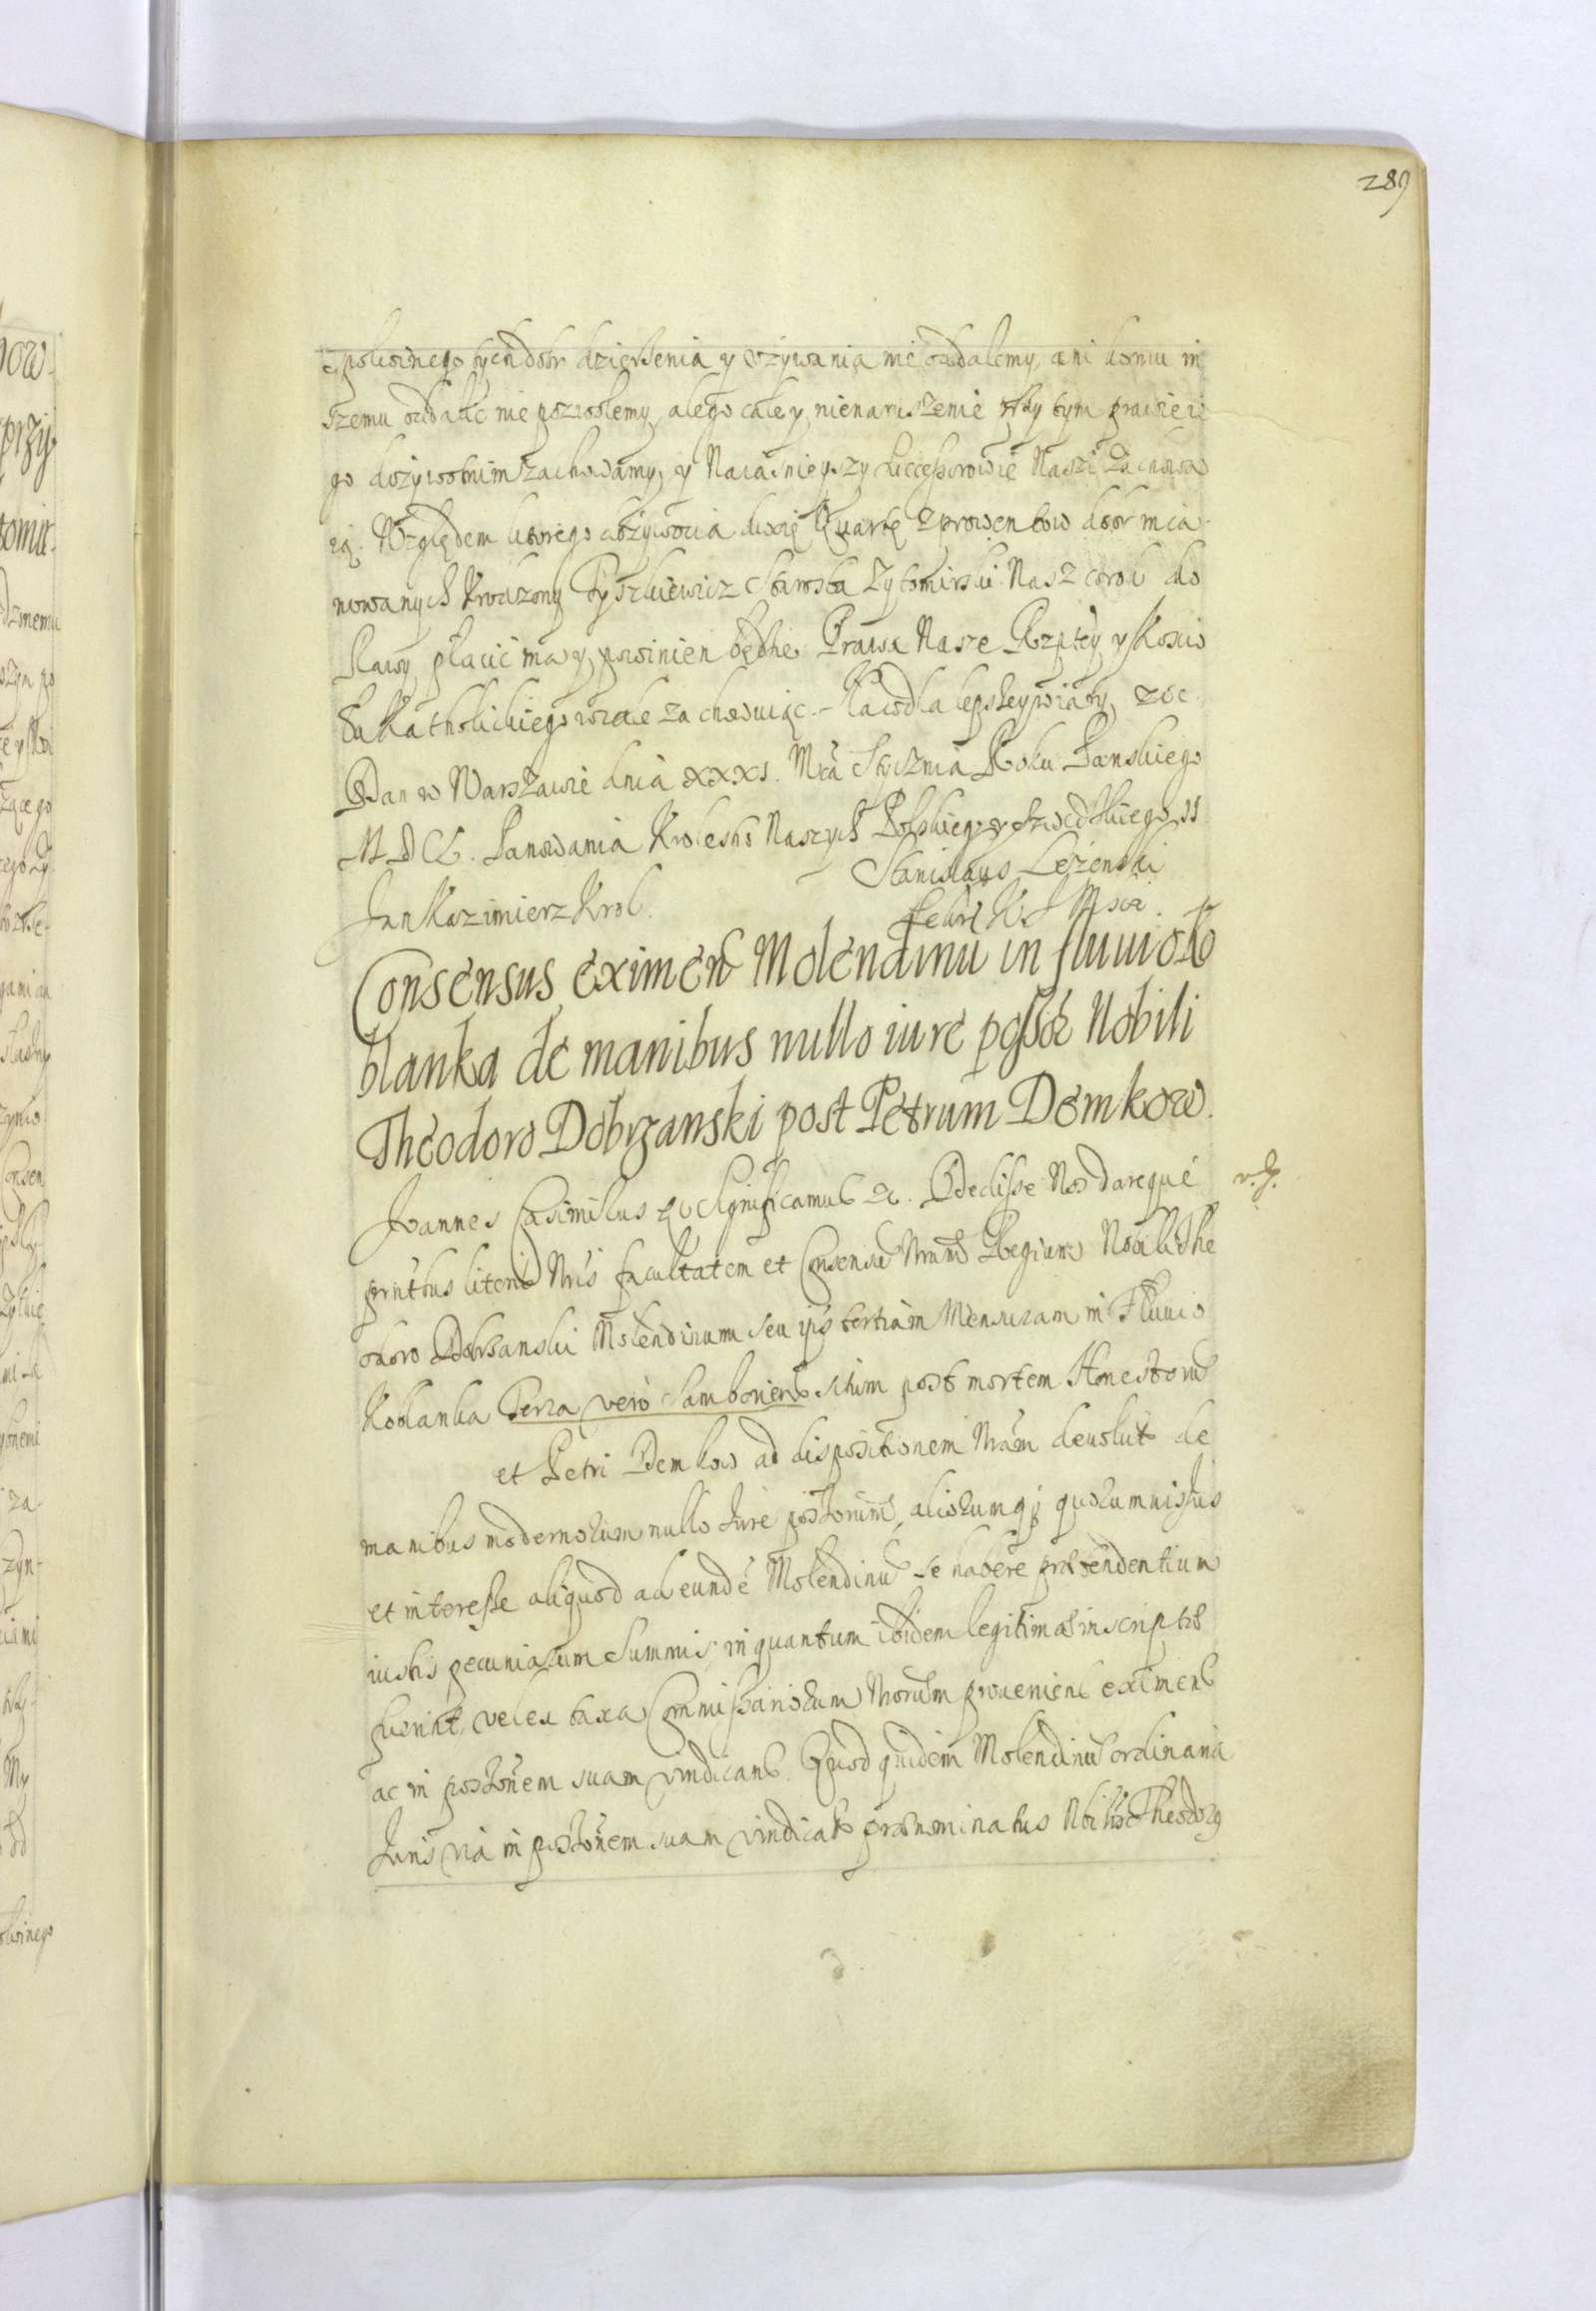 289
spokoinego tych dobr dzierżenia y vżywania nie oddalemy, ani komu in
szemu oddalić nie pozwolemy, ale go cale y nienaruszenie przy tym prawie ie
go dożywotnim zachowamy, y Naiaśnieyszy Successorowie Naszi zachowa
ią. Względem ktorego dożywocia dwoię Quartę z prowentow dobr mia
nowanych Vrodzony Tyszkiewicz Starosta Zytomirski Nasz corok do
Rawy płacić ma y powinien będzie. Prawa Nasze Rzptey y Koscio
ła Katholickiego wcale zachowuiąc. Na co dla lepszey wiary, etc
Dan w Warszawie dnia XXXI. Mca Stycznia Roku Panskiego
M D CL. Panowania Krolestw Naszych Polskiego y Szwedzkiego II
Jan Kazimierz Krol. Stanislaus Leżenski
Sekrt. K. J Msci.
Consensus eximen Molendinu in fluuio Ko
blanka de manibus nullo iure possoe Nobili
Theodoro Dobrzanski post Petrum Demkow.
Joannes Casimirus etc Significamus etc. Dedisse Nos dareque
v. J.
pntibus literis Nris facultatem et Consensu Nrum Regium Nobili The
odoro Dobrzanski Molendinum seu ips tertiam Mensuram in Fluuio
Koblanka Terra vero Samborien sitam post mortem Honestorum
et Petri Demkow ad dispositionem Nram deuolut de
manibus modernorum nullo Jure possorum, aliorumq quorumuis Jus
et interesse aliquod ad eunde Molendinu se habere praetendentium
iustis pecuniarum Summis in quantum ibidem legitime inscriptae
fuerint, vel ex taxa Commissariorum Nrorum prouenient eximend
ac in possionem suam vindicand. Quod quidem Molendinu ordinaria
Juris via in possionem suam vindicato praenominatus Nbilis Theodorg